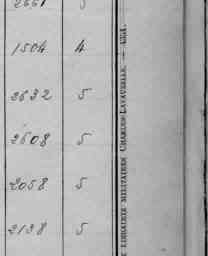 2661 5
1504 4
2632 5
2608 5
2058 5
2138 5
LIBRAIRIE MILITAIRE CHARLES-LAVAUZELLE. —